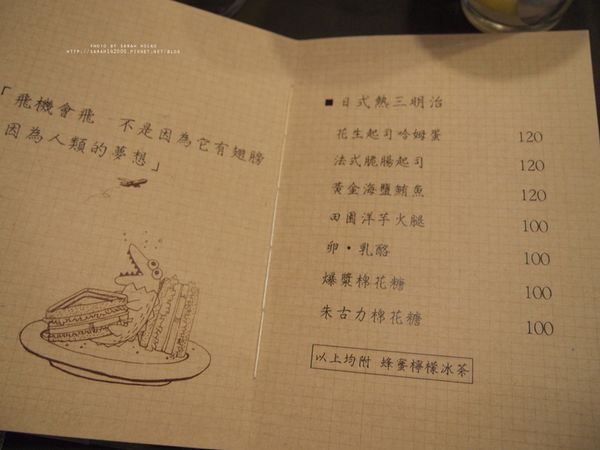 PHOTO BY SARAH HSIAO
HTTP://SARAH162000.PIXNET.NET/BLOG
「飛機會飛 不是因為它有翅膀
因為人類的夢想」
■ 日式熱三明治
花生起司哈姆蛋 120
法式脆腸起司 120
黃金海鹽鮪魚 120
田園洋芋火腿 100
卵・乳酪 100
爆漿棉花糖 100
朱古力棉花糖 100
以上均附 蜂蜜檸檬冰茶